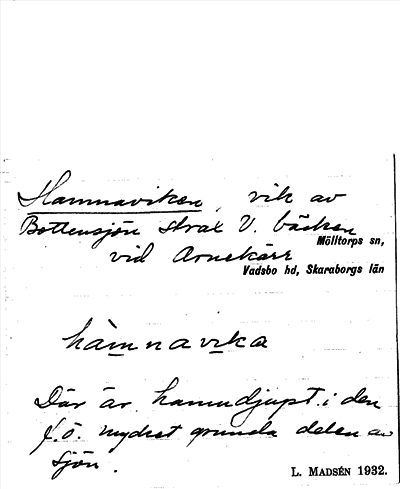 Hamnaviken, vik av
Bottensjön strax V. bäcken
Mölltorps sn,
vid Arnekärr
Vadsbo hd, Skaraborgs län
hàmnavika
Där är hamndjupt i den
f.ö. mycket grunda delen av
sjön.
L. MADSÉN 1932.